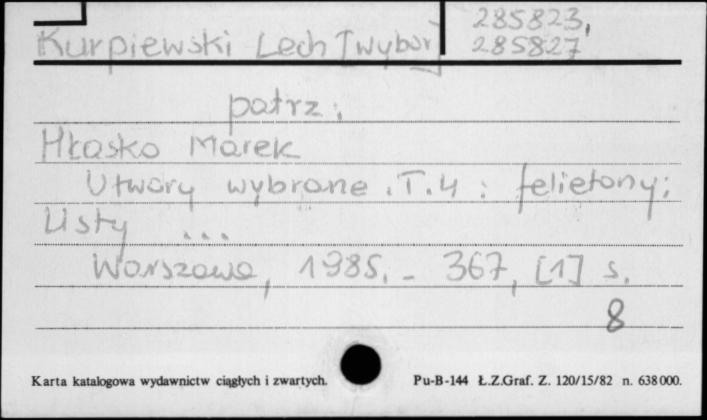 285823,
Kurpiewski Lech [wybór] 285827
patrz:
Hłasko Marek
Utwory wybrane. T.4: felietony;
Listy ...
Warszawa, 1985. - 367, [1] s.
8
Karta katalogowa wydawnictw ciągłych i zwartych. Pu-B-144 Ł.Z.Graf. Z. 120/15/82 n. 638000.